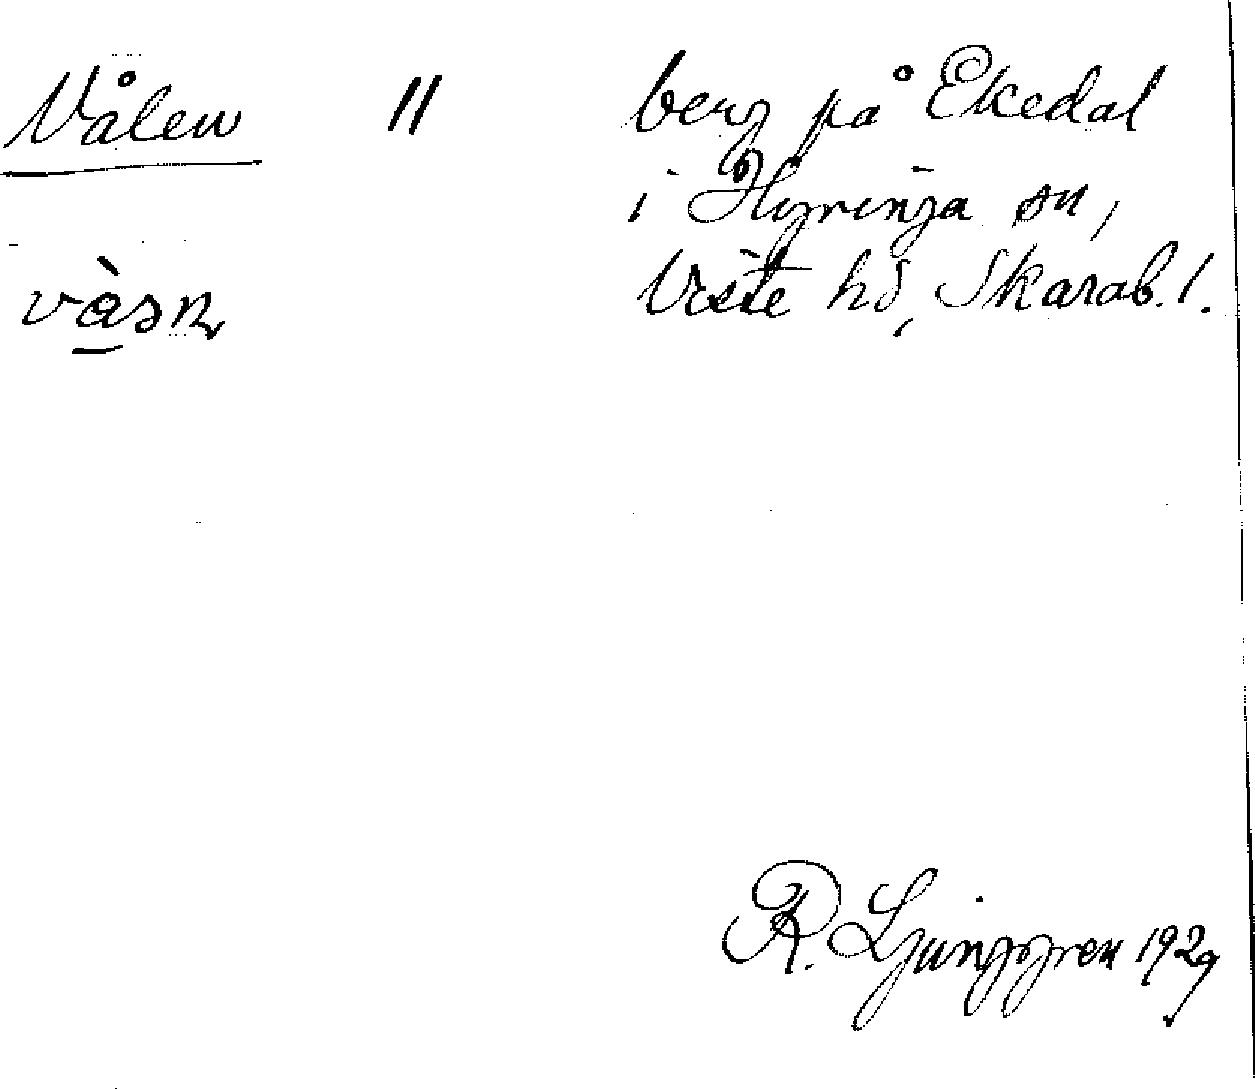 Vålen 11 berg på Ekedal
i Hyringa sn,
Viste hd, Skarab. l.
R. Ljunggren 1929